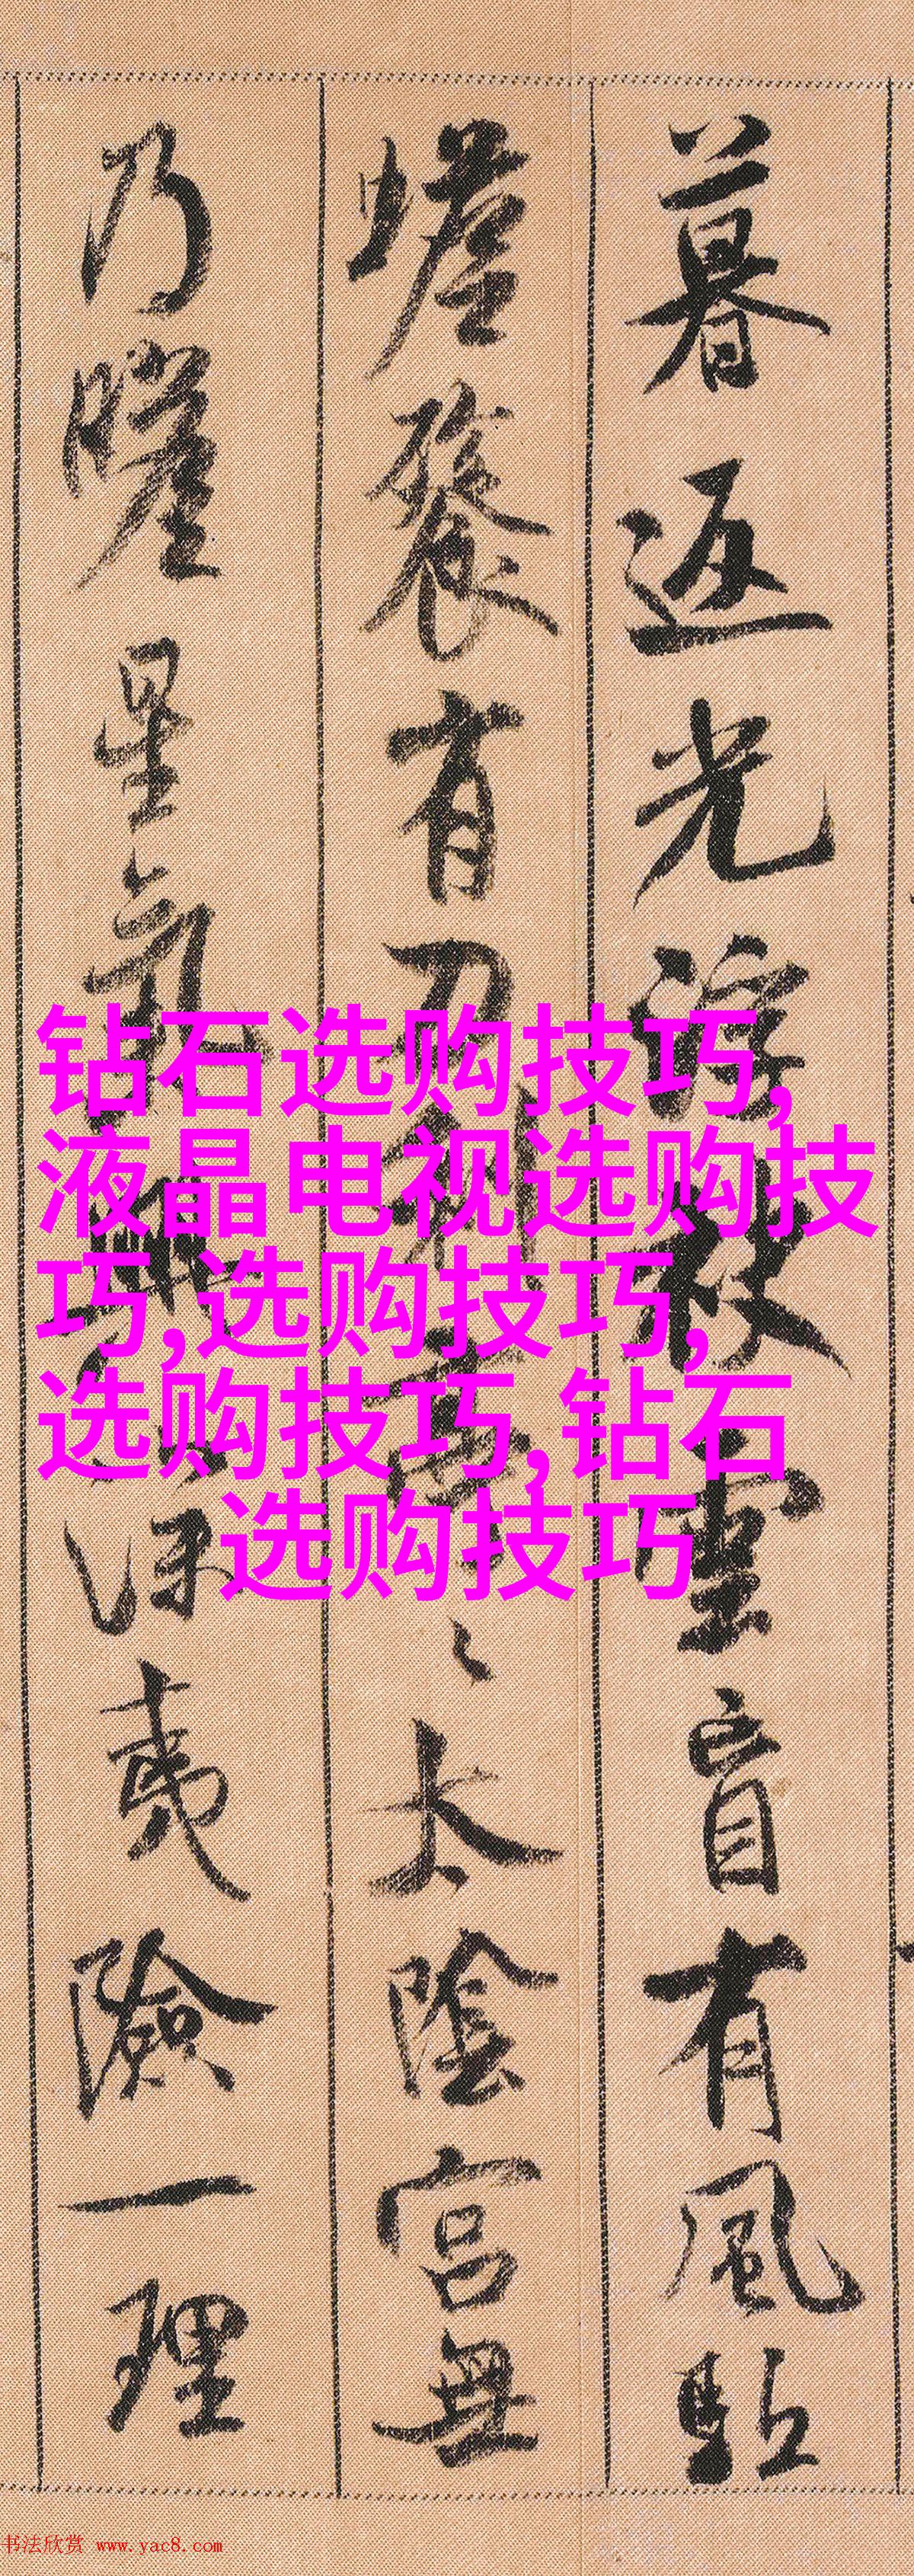 暮返光深林靈盲有風點
燈養有刀利
太陰宮無
乃曜星氣
深夷險一理
钻石选购技巧,
液晶电视选购技
巧,选购技巧,
选购技巧,钻石
选购技巧
书法欣赏 www.yac8.com